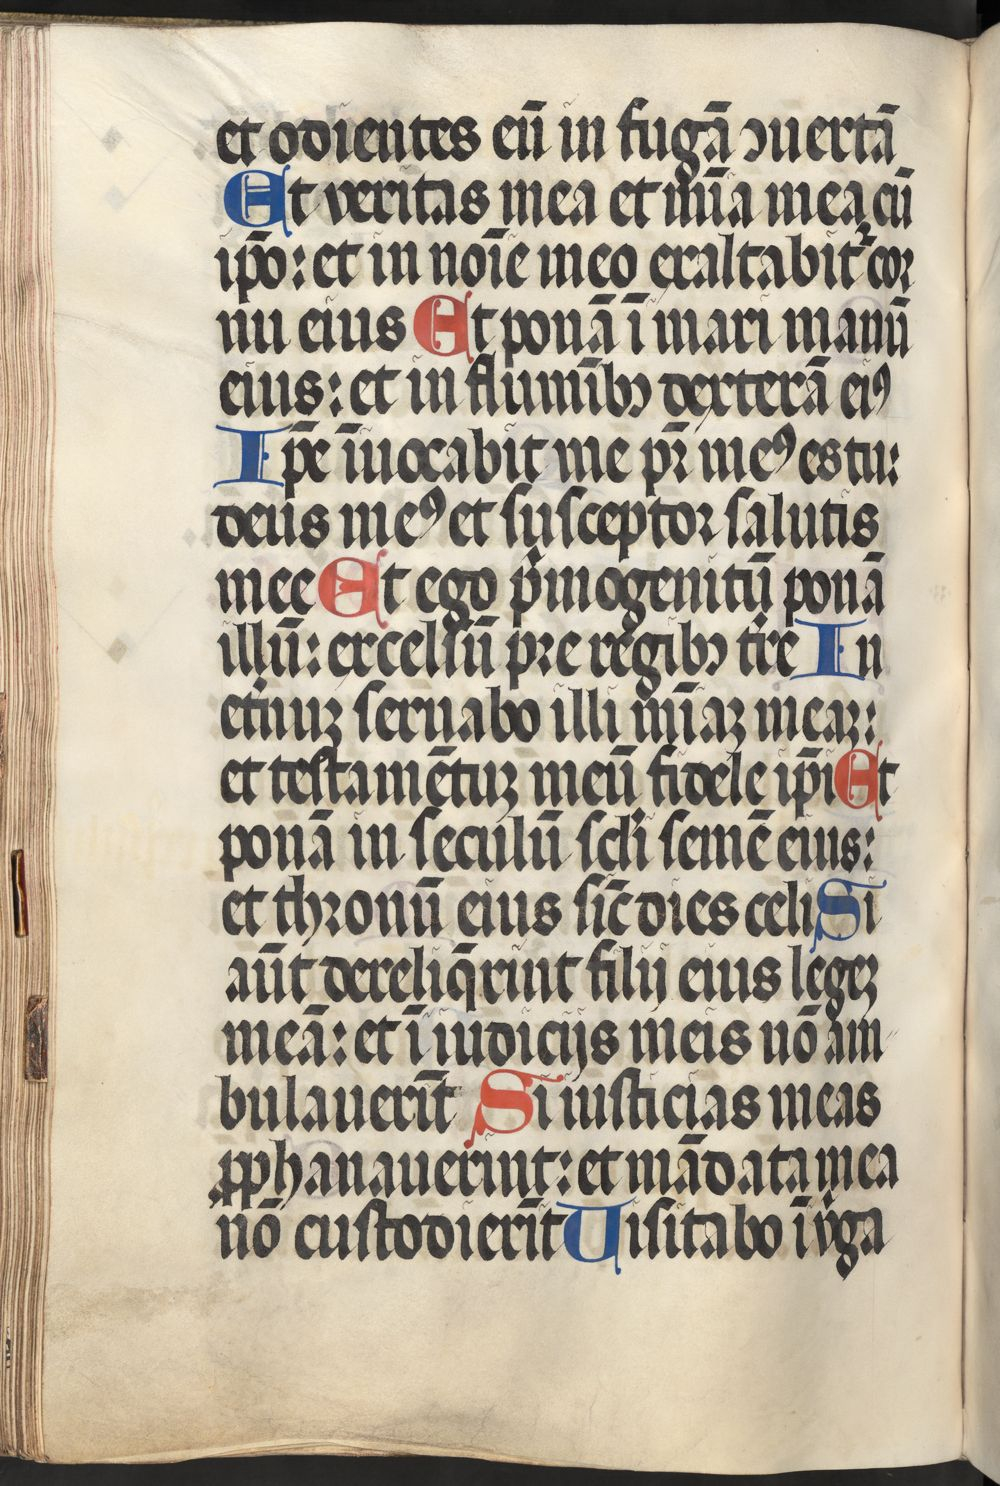 et odientes eū in fugā ꝯuertā
Et veritas mea et mīa mea cū
ip̄o: et in noīe meo exaltabit᷑ coꝛ
nu eius Et ponā ī mari manū
eius: et in flumībꝫ dexterā eiꝰ
Ip̄e īuocabit me pr̄ meꝰ es tu:
deus meꝰ et susceptoꝛ salutis
mee Et ego pͥmogenitū ponā
illū: excelsū pꝛe regibꝫ tr̄e In
et̄nuꝫ seruabo illi mīaꝫ meaꝫ:
et testamētuꝫ meū fidele ip̄i Et
ponā in seculū scl̄i semē eius:
et thꝛonū eius sic̄ dies celi Si
aūt dereliq̄rint filij eius legeꝫ
meā: et ī iudicijs meis nō am
bulauerīt Si iusticias meas
ꝓphanauerint: et mādata mea
nō custodierīt Uisitabo ī vͥga